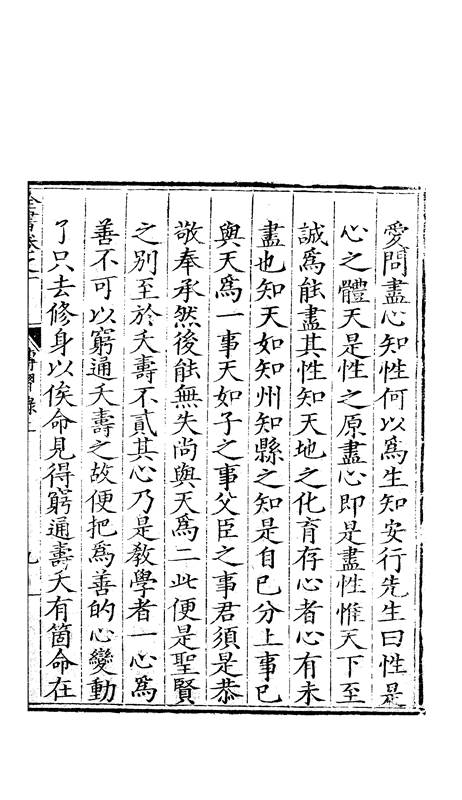 愛問盡心知性何以爲生知安行先生曰性是
心之體天是性之原盡心即是盡性惟天下至
誠爲能盡其性知天地之化育存心者心有未
盡也知天如知州知縣之知是自己分上事已
與天爲一事天如子之事父臣之事君須是恭
敬奉承然後能無失尚與天爲二此便是聖賢
之別至於夭壽不貳其心乃是教學者一心爲
善不可以窮通夭壽之故便把爲善的心變動
了只去修身以俟命見得窮通壽夭有箇命在
全書卷之一
傳習錄上
九